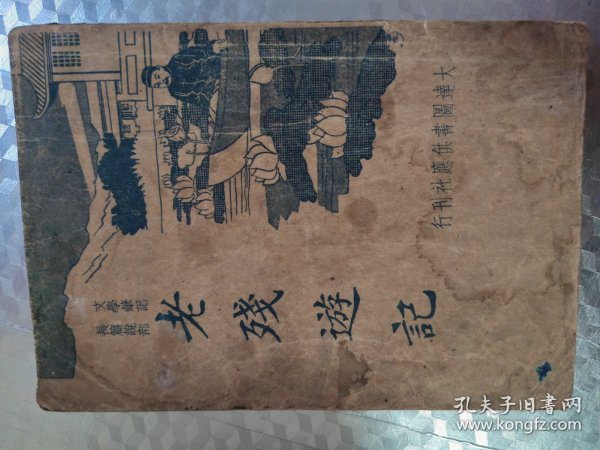 大達圖書供應社刊行
文學筆記
長篇說部
老殘遊記
孔夫子旧书网
www.kongfz.com